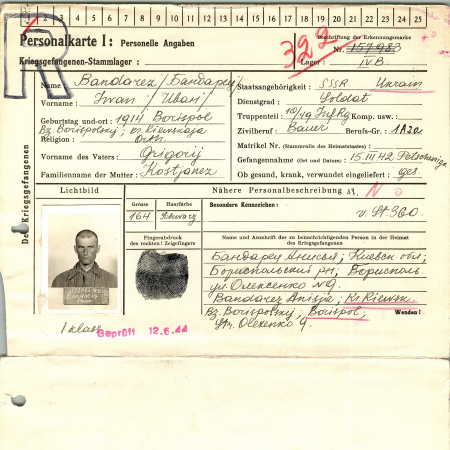 1 2 3 4 5 6 7 8 9 10 11 12 13 14 15 16 17 18 19 20 21 22 23 24 25
R
Personalkarte I: Personelle Angaben
Beschriftung der Erkennungsmarke
Nr. 157983
Kriegsgefangenen-Stammlager:
Lager: IVB
Des Kriegsgefangenen
Name: Bandarez / Бандарец /
Vorname: Iwan / Иван /
Geburtstag und-ort: 1914 Borispol
Bz. Borispolskij, Kiewskaja
Religion: Orth.
Vorname des Vaters: Grigorij
Familienname der Mutter: Kostjanez
Staatsangehörigkeit: SSSR Ukrain
Dienstgrad: Soldat
Truppenteil: Komp. usw.:
Zivilberuf: Bauer Berufs-Gr.: 1A20
Matrikel Nr. (Stammrolle des Heimatstaates):
Gefangennahme (Ort und Datum): 15.III 42
Ob gesund, krank, verwundet eingeliefert: ges.
Lichtbild
Nähere Personalbeschreibung
Grösse
Haarfarbe
Besondere Kennzeichen:
164
Schwarz
v. St. 360.
Fingerabdruck
des rechten! Zeigefingers
Name und Anschrift der zu benachrichtigenden Person in der Heimat
des Kriegsgefangenen
Бандарец Анисья, Киевск обл,
Бориспольский рн, Борисполь
ул Олексенко N 9.
Bandarez Anisja, Kr. Kiewsk.
Bz. Borispolskij, Borispol,
Str. Olexenko 9.
Wenden!
1 klass
Geprüft 12.6.44